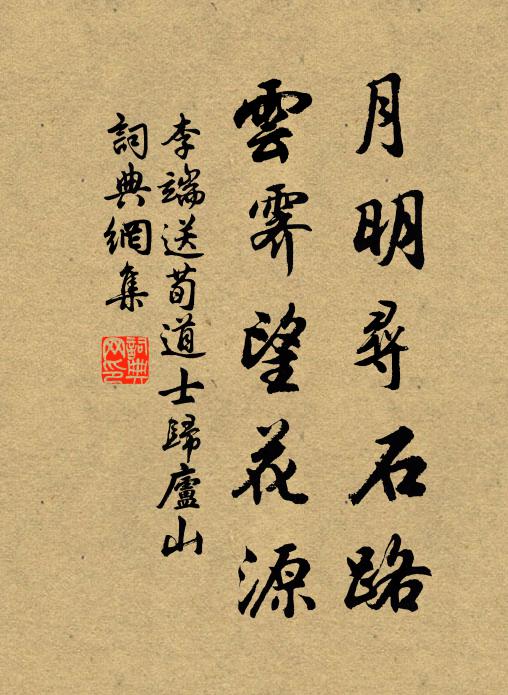 月明尋石路
雲霽望花源
李端送荀道士歸廬山
詞典網集
詞典網印